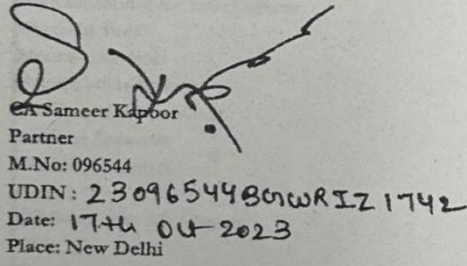 CA Sameer Kapoor
Partner
M.No: 096544
UDIN: 23096544BGWRIZ1742
Date: 17th Oct 2023
Place: New Delhi